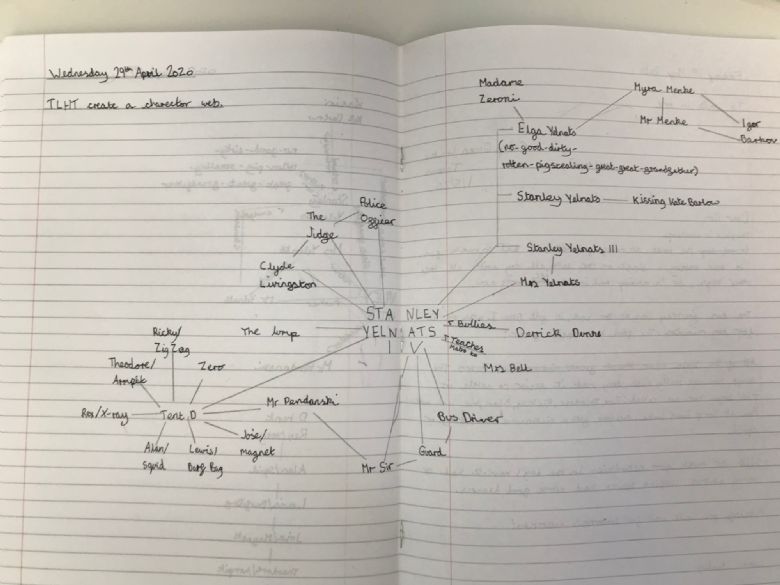 Wednesday 29th April 2020
TLHT create a charector web.
Madame
Zeroni
Elga Yelnats
(no-good-dirty-
rotten-pigstealing-great-great-grandfather)
Myra Menke
Mr Menke
Igor
Barkov
Stanley Yelnats
Kissing Kate Barlow
Stanley Yelnats III
Mrs Yelnats
Police
Officer
The
Judge
Clyde
Livingston
STANLEY
YELNATS
IV
The lump
↑ Bullies
Derrick Dunne
↑ Teaches
Mrs Bell
Bus Driver
Guard
Mr Sir
Mr Pendanski
Ricky/
Zig Zag
Theodore/
Armpit
Zero
Rex/X-ray
Tent D
Alan/
Squid
Lewis/
Barf Bag
José/
magnet